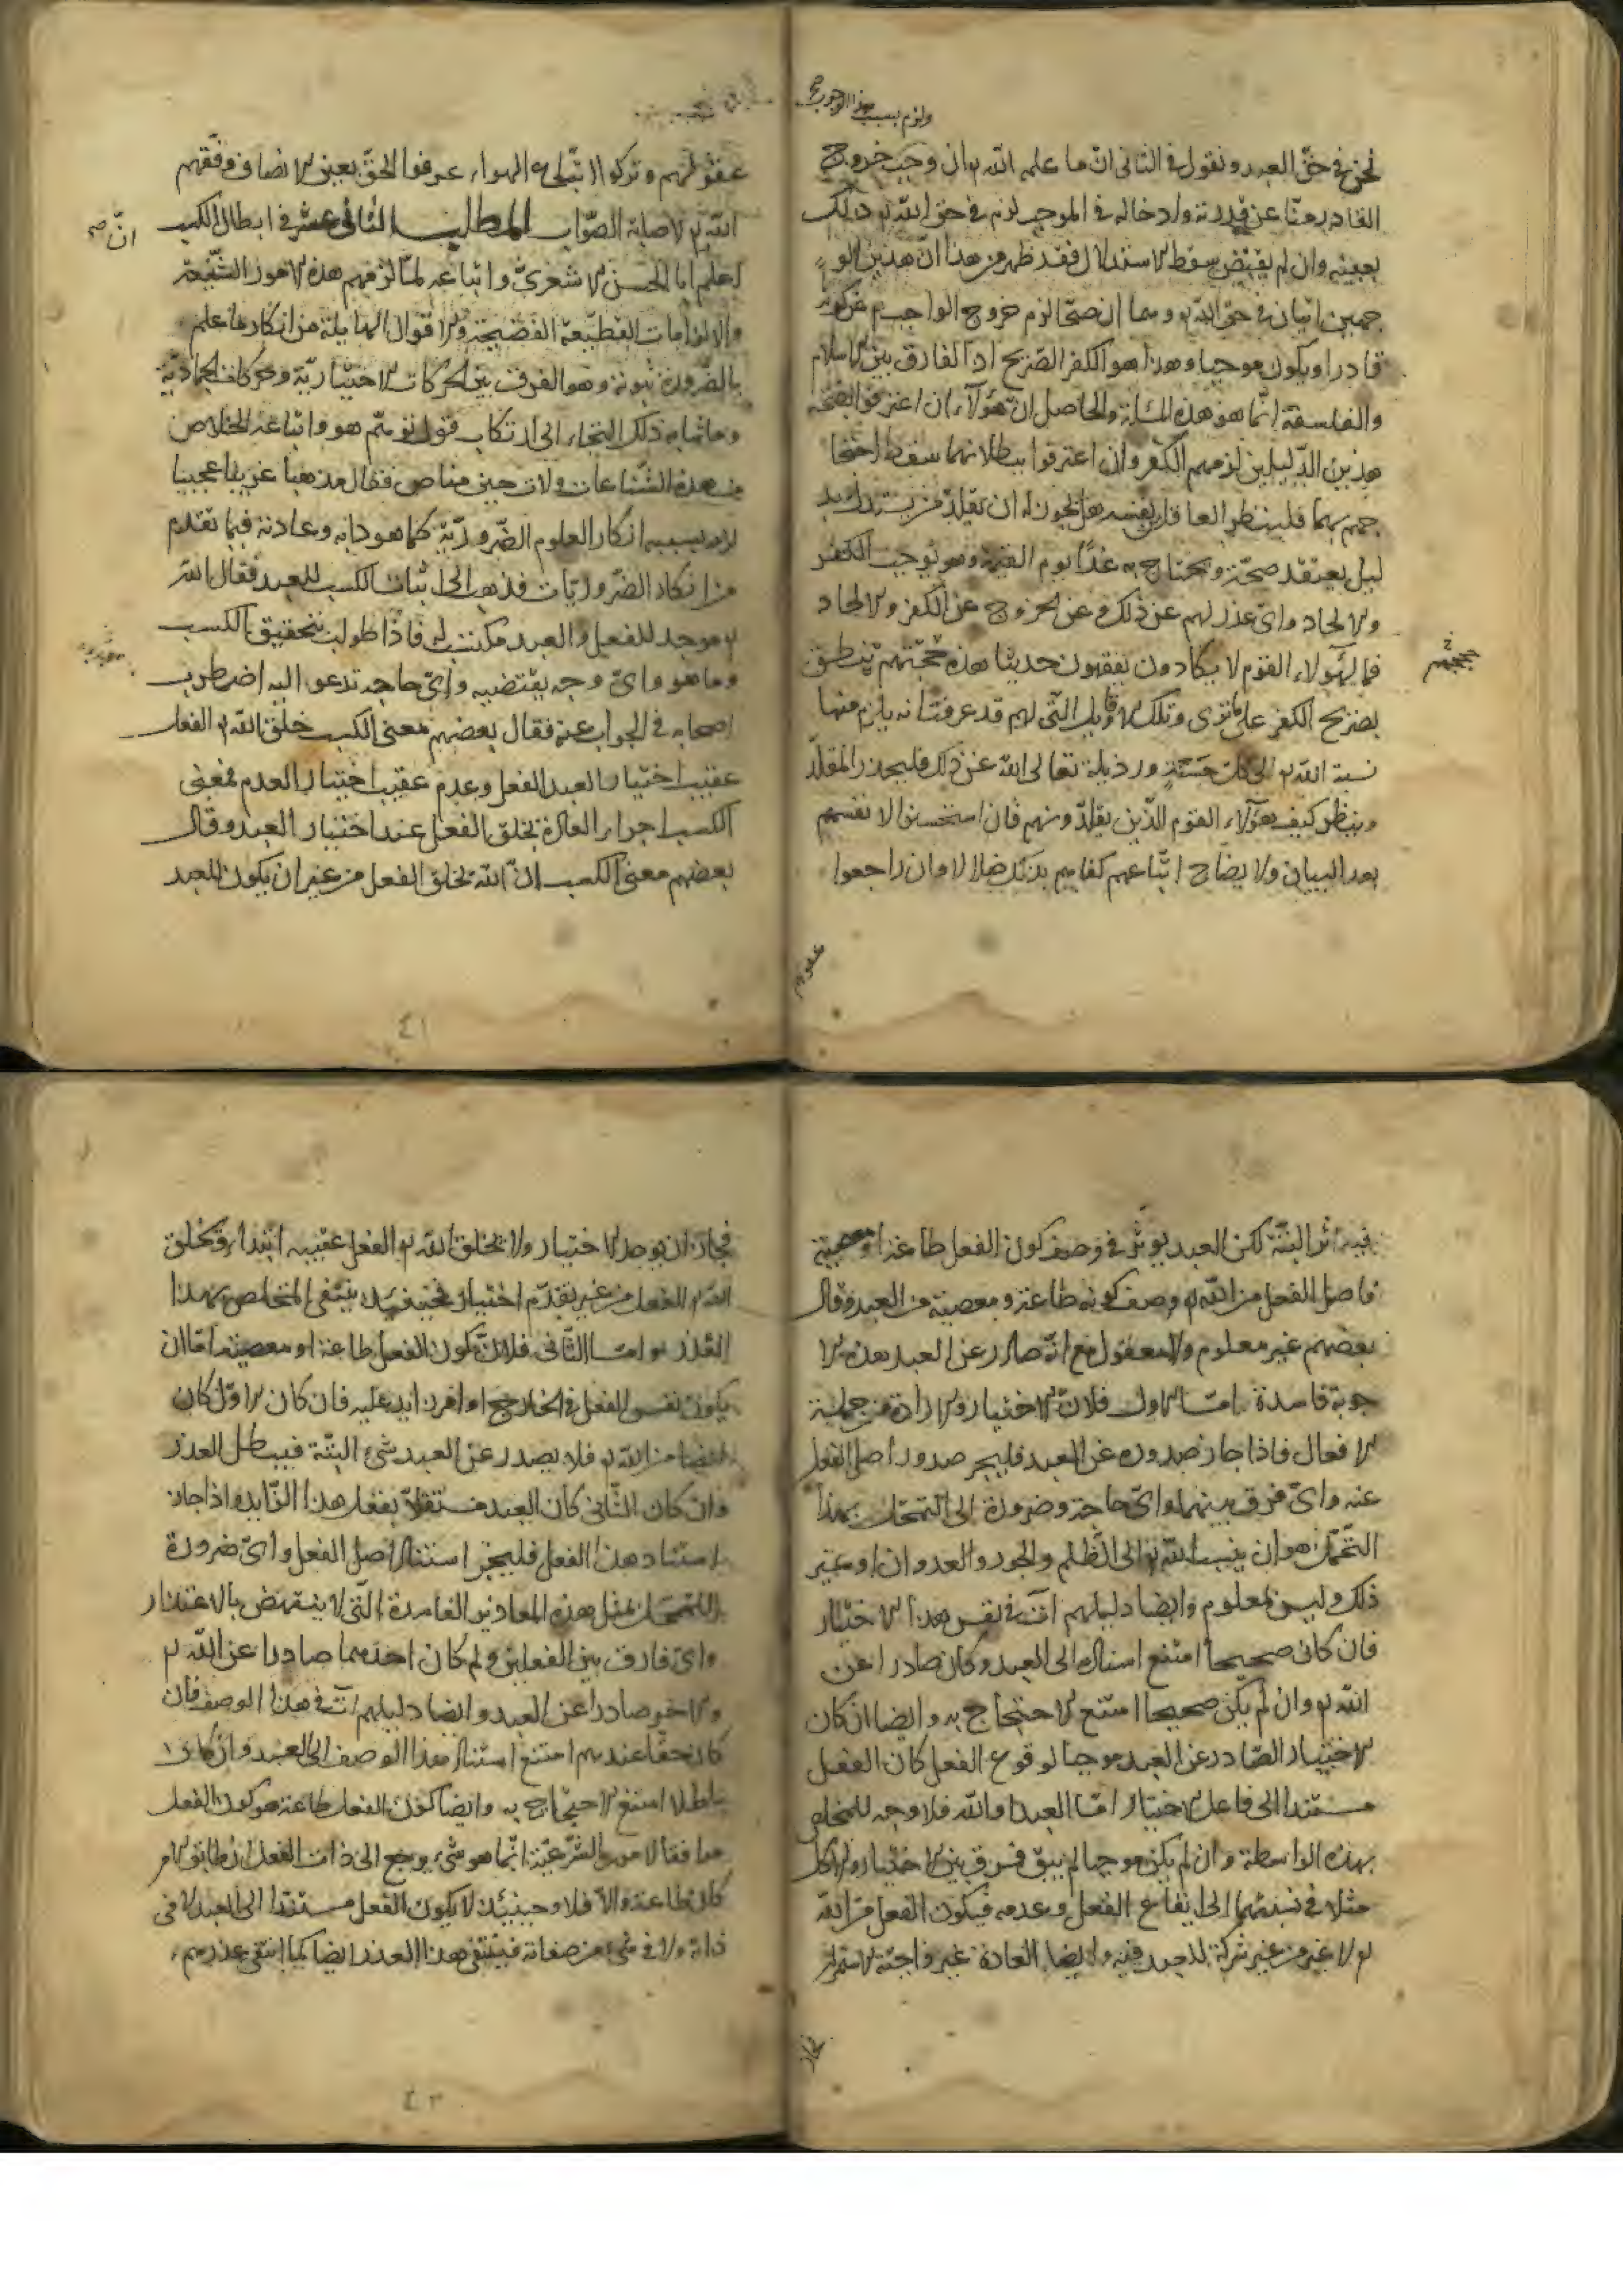 ولزم بسبب هذا الوجوب
نحن في حق العبد ونقول في الثاني ان ما علمه الله تم ان وجب خروج
القادر منا عن قدرته وادخاله في الموجب لزم في حق الله تم ذلك
بعينه وان لم يقتض سقط الاستدلال فقد ظهر من هذا ان هذين الو
جهين اتيان في حق الله تم وهما ان صحا لزم خروج الواجب تم عن كونه
قادرا ويكون موجبا وهذا هو الكفر الصريح اذ الفارق بين الاسلام
والفلسفة انما هو هذه المسئلة والحاصل ان هؤلاء ان اعترفوا بصحة
هذين الدليلين لزمهم الكفر وان اعترفوا ببطلانهما سقط احتجا
جهم بهما فلينظر العاقل لنفسه هل يجوز له ان يقلد من يستدل بد
ليل يعتقد صحته ويحتاج به غدا يوم القيمة وهو يوجب الكفر
والالحاد واي عذر لهم عن ذلك وعن الخروج عن الكفر والالحاد
فما لهؤلاء القوم لا يكادون يفقهون حديثا هذه حجتهم ينطق
حججهم
بصريح الكفر على ما ترى وتلك الاقاويل التي لهم قد عرفت انه يلزم منها
نسبة الله تم الى كل خسيسة ورذيلة تعالى الله عن ذلك فليحذر المقلد
وينظر كيف هؤلاء القوم الذين يقلدونهم فان استحسنوا لانفسهم
بعد البيان والايضاح اتباعهم كفاهم بذلك ضلالا وان راجعوا
عقولهم
عقولهم وتركوا اتباع الاهواء عرفوا الحق بعين الانصاف وفقهم
الله تم لاصابة الصواب المطلب الثاني عشر في ابطال الكسب
ان صح
اعلم ابا الحسن الاشعري واتباعه لما لزمهم هذه الامور الشنيعة
والالزامات الفظيعة الفضيحة والاقوال الهايلة من انكار ما علم
بالضرورة ثبوته وهو الفرق بين الحركات الاختيارية والحركات الجمادية
وما شابه ذلك التجاء الى ارتكاب قول توهم هو واتباعه الخلاص
من هذه الشناعات ولات حين مناص فقال مذهبا غريبا عجيبا
لزمه بسببه انكار العلوم الضرورية كما هو دابه وعادته فيما تقدم
من انكار الضروريات فذهب الى اثبات الكسب للعبد فقال الله
تم موجد للفعل والعبد مكتسب له فاذا طولب بتحقيق الكسب
وما هو واي وجه يقتضيه واي حاجه تدعو اليه اضطرب
اصحابه في الجواب عنه فقال بعضهم معنى الكسب خلق الله تم الفعل
عقيب اختيار العبد الفعل وعدم عقيب اختيار العدم فمعنى
الكسب اجراء العادة بخلق الفعل عند اختيار العبد وقال
بعضهم معنى الكسب ان الله يخلق الفعل من غير ان يكون للعبد
٤١
فيه اثر البتة لكن العبد يؤثر في وصف كون الفعل طاعة او معصية
فاصل الفعل من الله تم ووصف كونه طاعة ومعصية من العبد وقال
بعضهم غير معلوم ولا معقول مع انه صادر عن العبد هذه الا
جوبة فاسدة اما الاول فلان الاختيار والارادة من جملة
الافعال فاذا جاز صدوره عن العبد فليجز صدور اصل الفعل
عنه واي فرق بينهما واي حاجة وضرورة الى التمحل بهذا
التمحل هو ان ينسب الله تم الى الظلم والجور والعدوان او غير
ذلك وليس لمعلوم وايضا دليلهم آت في نفس هذا الاختيار
فان كان صحيحا امتنع اسناده الى العبد وكان صادرا عن
الله تم وان لم يكن صحيحا امتنع الاحتجاج به وايضا ان كان
الاختيار الصادر عن العبد موجبا لوقوع الفعل كان الفعل
مستندا الى فاعل الاختيار اما العبد او الله فلا وجه للمخلص
بهذه الواسطة وان لم يكن موجبا لم يبق فرق بين الاختيار والاكل
مثلا في نسبتهما الى ايقاع الفعل وعدمه فيكون الفعل من الله
تم لا غير من غير شركة للعبد فيه وايضا العادة غير واجبة الاستمرار
فجاز
فجاز ان يوجد الاختيار ولا يخلق الله تم الفعل عقيبه ابتداء ويخلق
الله تم الفعل من غير تقدم اختيار فحينئذ ينتفى المخلص بهذا
العذر واما الثاني فلان كون الفعل طاعة او معصية اما ان
يكون نفس الفعل في الخارج او امر زايد عليه فان كان الاول كان
ايضا من الله تم فلا يصدر عن العبد شيء البتة فيبطل العذر
وان كان الثاني كان العبد مستقلا بفعل هذا الزايد واذا جاز
استناد هذا الفعل فليجز استناد اصل الفعل واي ضرورة
للتمحل بمثل هذه المعاذير الفاسدة التي لا ينتهض بالاعتذار
واي فارق بين الفعلين ولم كان احدهما صادرا عن الله تم
والاخر صادرا عن العبد وايضا دليلهم آت في هذا الوصف فان
كان حقا عندهم امتنع استناد هذا الوصف الى العبد وان كان
باطلا امتنع الاحتجاج به وايضا كون الفعل طاعة هو كون الفعل
موافقا لامور الشرعية انما هو شيء يرجع الى ذات الفعل ان طابق الامر
كان طاعة والا فلا وحينئذ لا يكون الفعل مستندا الى العبد لا في
ذاته ولا في شيء من صفاته فينتفى هذا العذر ايضا كما انتفى عذرهم
٤٢